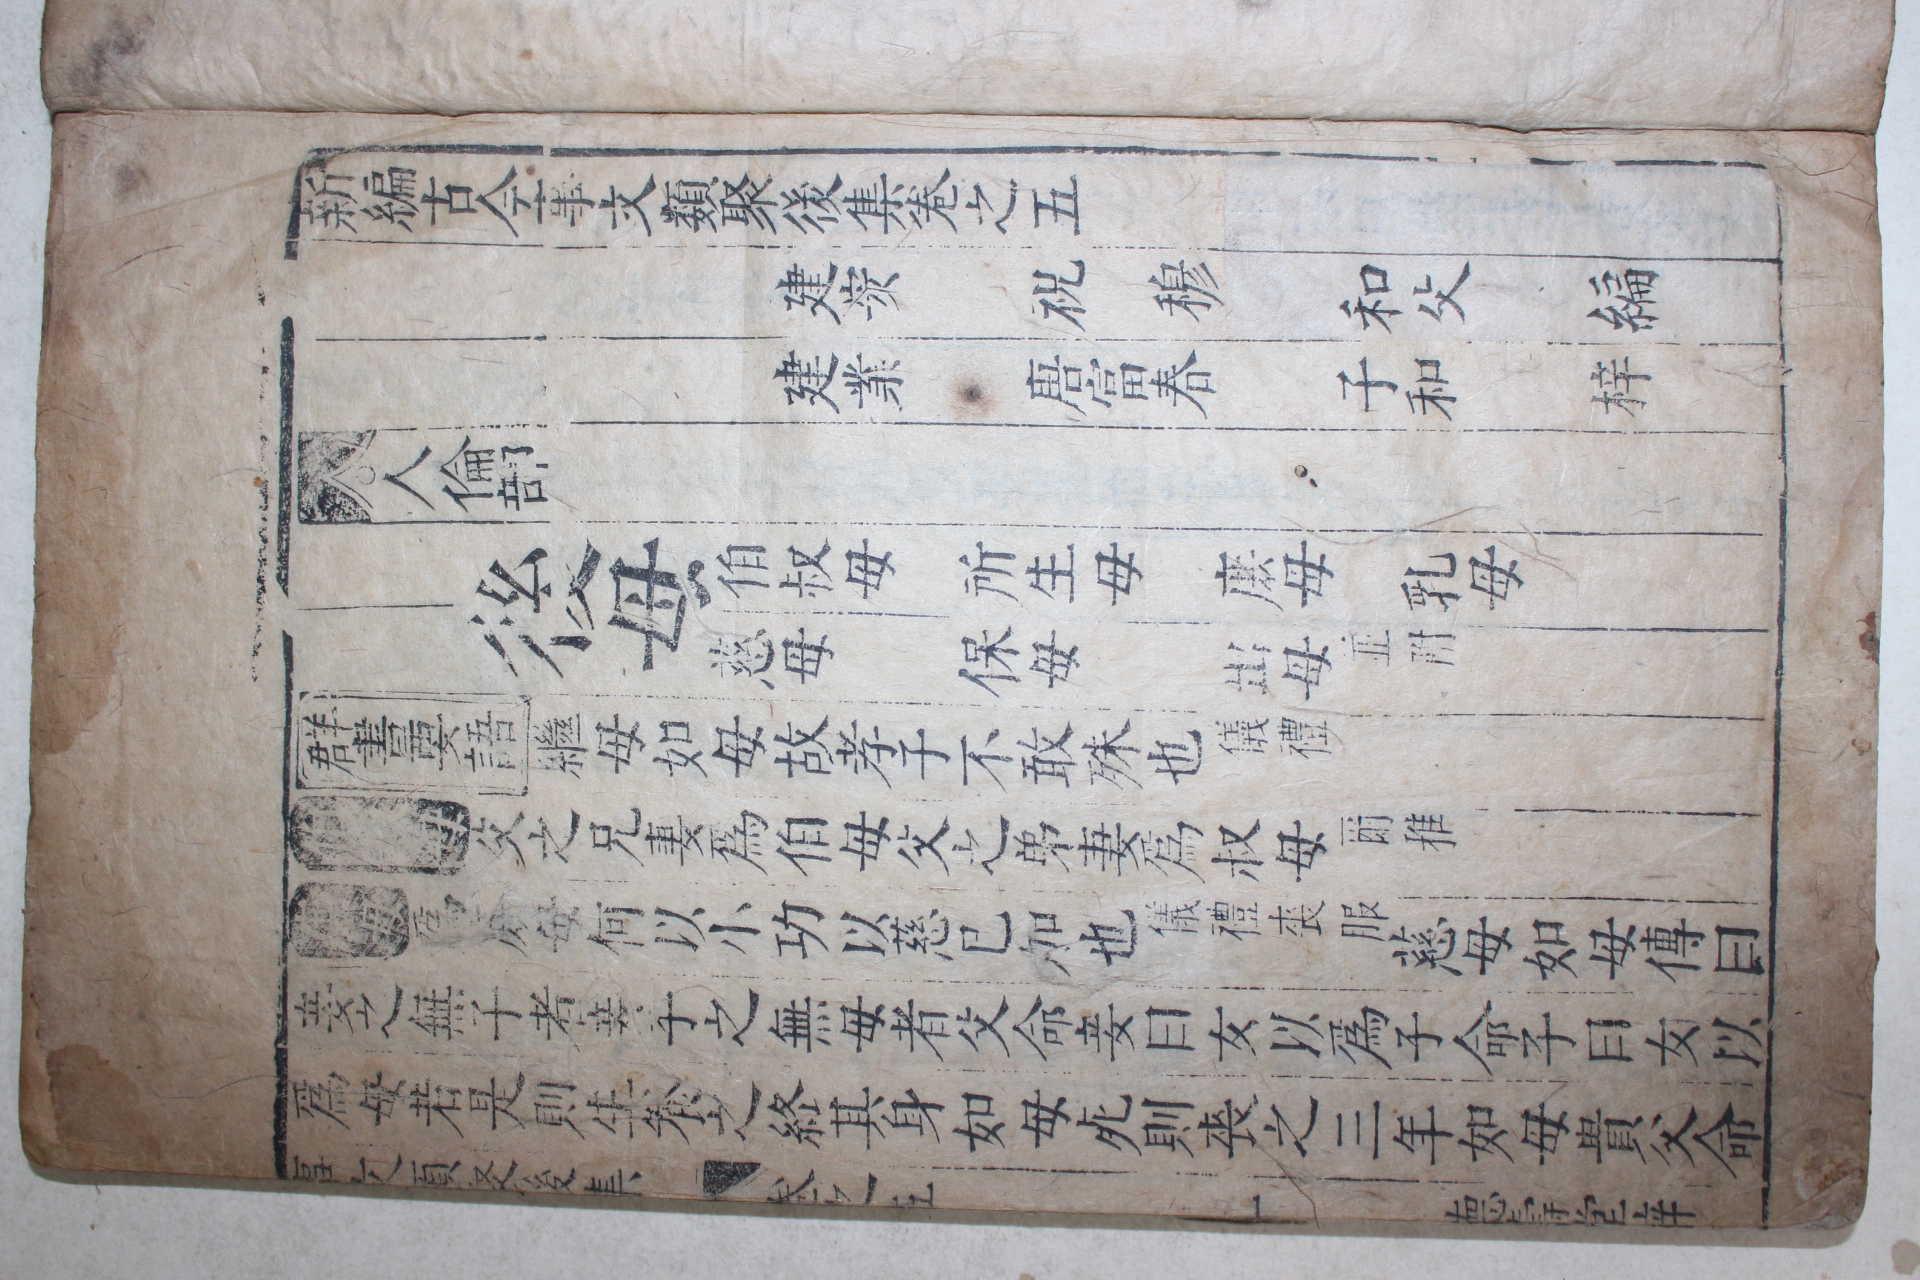 新編古今事文類聚後集卷之五
建安 祝 穆 和父 編
建業 唐富春 子和 梓
人倫部
後母 伯叔母 所生母 庶母 乳母
慈母 保母 出母 並附
群書要語 繼母如母故孝子不敢殊也 儀禮
父之兄妻爲伯母父之弟妻爲叔母 爾雅
爲庶母何以小功以慈己加也 儀禮喪服 慈母如母傳曰
妾之無子者妾子之無母者父命妾曰女以爲子命子曰女以
爲母若是則生養之終其身如母死則喪之三年如母貴父命
事文類聚後集 卷之五 一 德壽堂梓